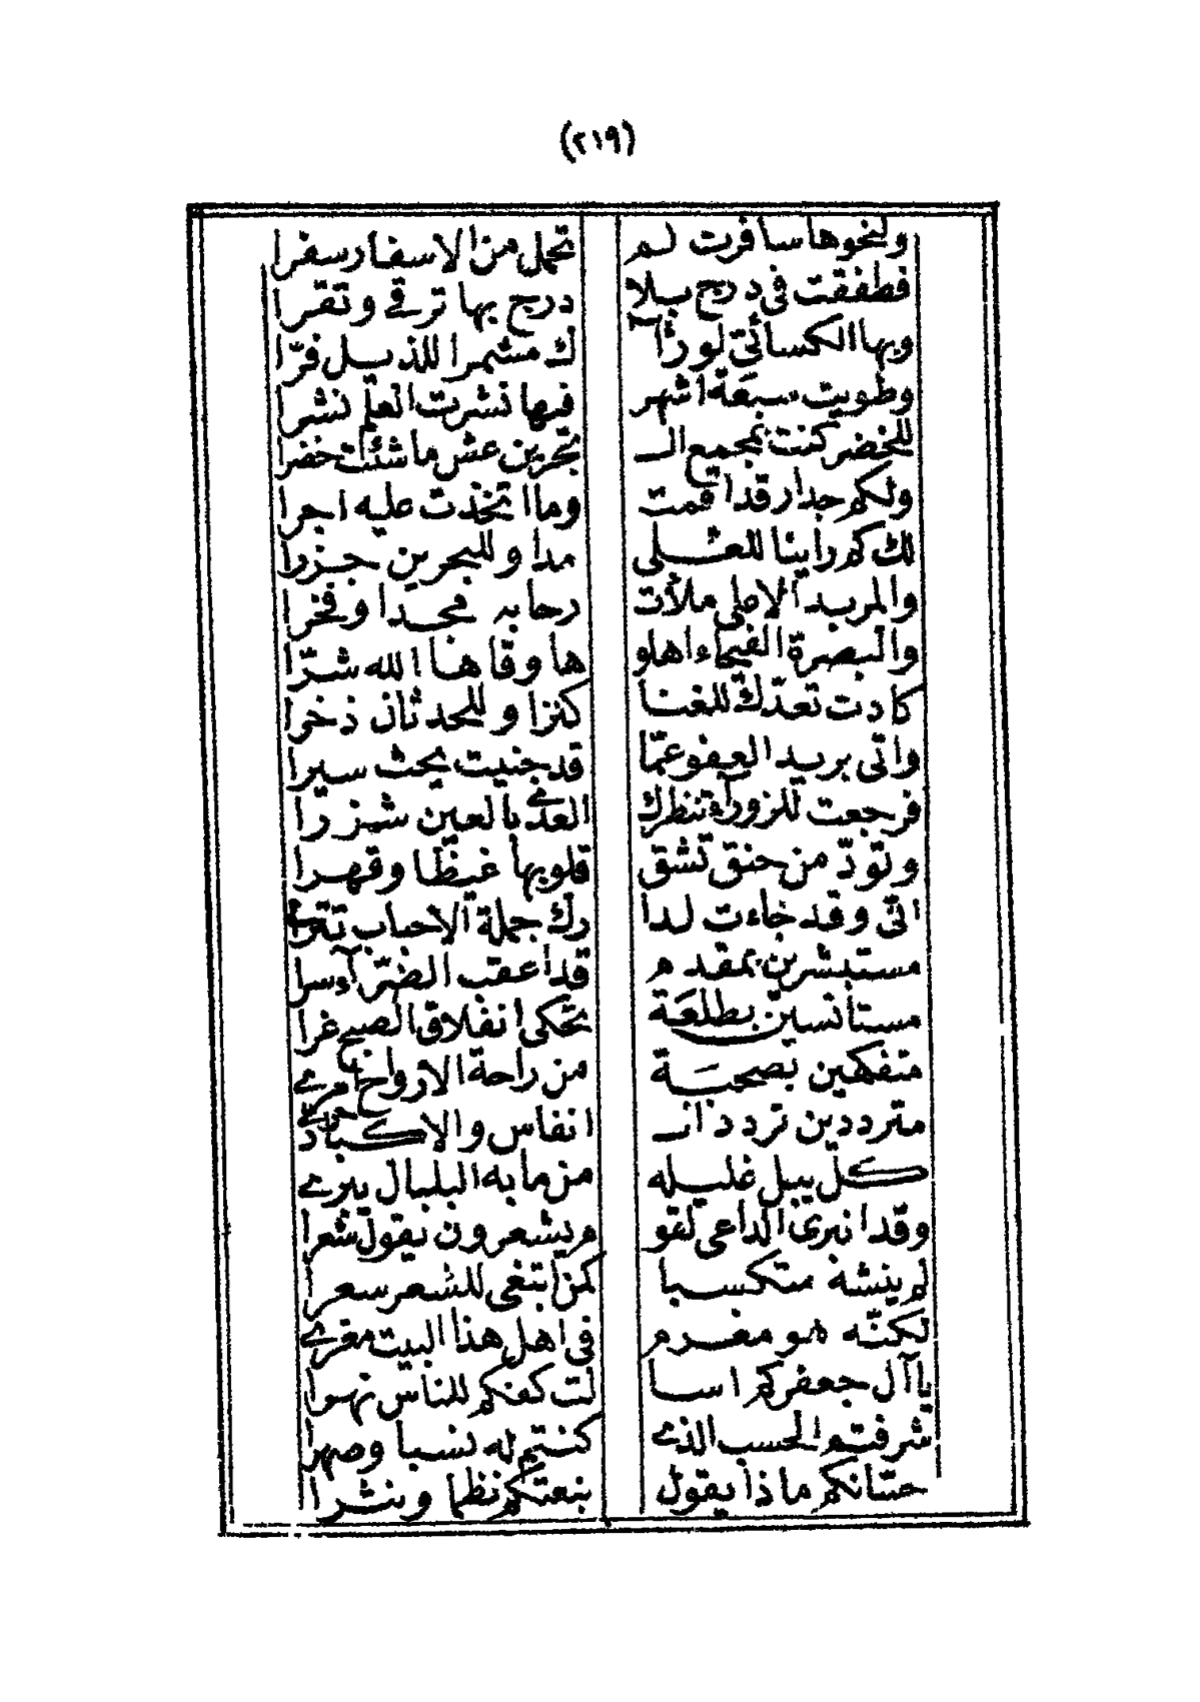 (٢١٩)
ولنحوها سافرت لم تحمل من الاسفار سفرا
فطفقت فى درج ببلا درج بها ترقے وتقرا
وبها الكسائى لو رآ ك مشمرا للذيل فرّا
وطويت سبعة اشهر فيها نشرت العلم نشرا
للخضر كنت بمجمع الـ بحرين عش ما شئت خضرا
ولكم جدار قد اقمت وما اتخذت عليه اجرا
لك كم راينا للعلى مدا وللبحرين جزرا
والمربد الاعلى ملأت رحابه مجدا وفخرا
والبصرة الفيحاء اهلو ها وقاها الله شرّا
كادت تعدّك للغنا كنزا وللحدثان ذخرا
واتى بريد العفو عمّا قد جنيت يحث سيرا
فرجعت للزورآء تنظرك العدے بالعين شزرا
وتودّ من حنق تشق قلوبها غيظا وقهرا
انّى وقد جاءت لدا رك جملة الاحباب تترا
مستبشرين بمقدم قد اعقب الضرّآء سرا
مستأنسين بطلعة تحكى انفلاق الصبح غرا
متفكهين بصحبة من راحة الارواح امرے
مترددين تردد الـ انفاس والاكباد حرّے
كلّ يبل غليله من ما به البلبال يبرے
وقد انبرى الداعى لقو م يشعرون يقول شعرا
لم ينشه متكسبا كمن ابتغى للشعر سعرا
لكنّه هو مغرم فى اهل هذا البيت مغرے
يا آل جعفركم اسا لت كفكم للناس نهرا
شرفتم الحسب الذے كنتم له نسبا وصهرا
حسّانكم ماذا يقول بنعتكم نظما ونثرا